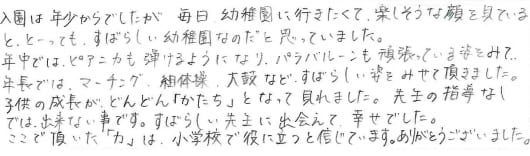 入園は年少からでしたが 毎日 幼稚園に行きたくて、楽しそうな顔を見ている
と、とーっても、すばらしい幼稚園なのだと思っていました。
年中では、ピアニカも弾けるようになり、パラバルーンも頑張っている姿をみて、
年長では、マーチング、組体操、太鼓など、すばらしい姿をみせて頂きました。
子供の成長が、どんどん「かたち」となって見れました。先生の指導なし
では、出来ない事です。すばらしい先生に出会えて、幸せでした。
ここで頂いた「力」は、小学校で役に立つと信じています。ありがとうございました。